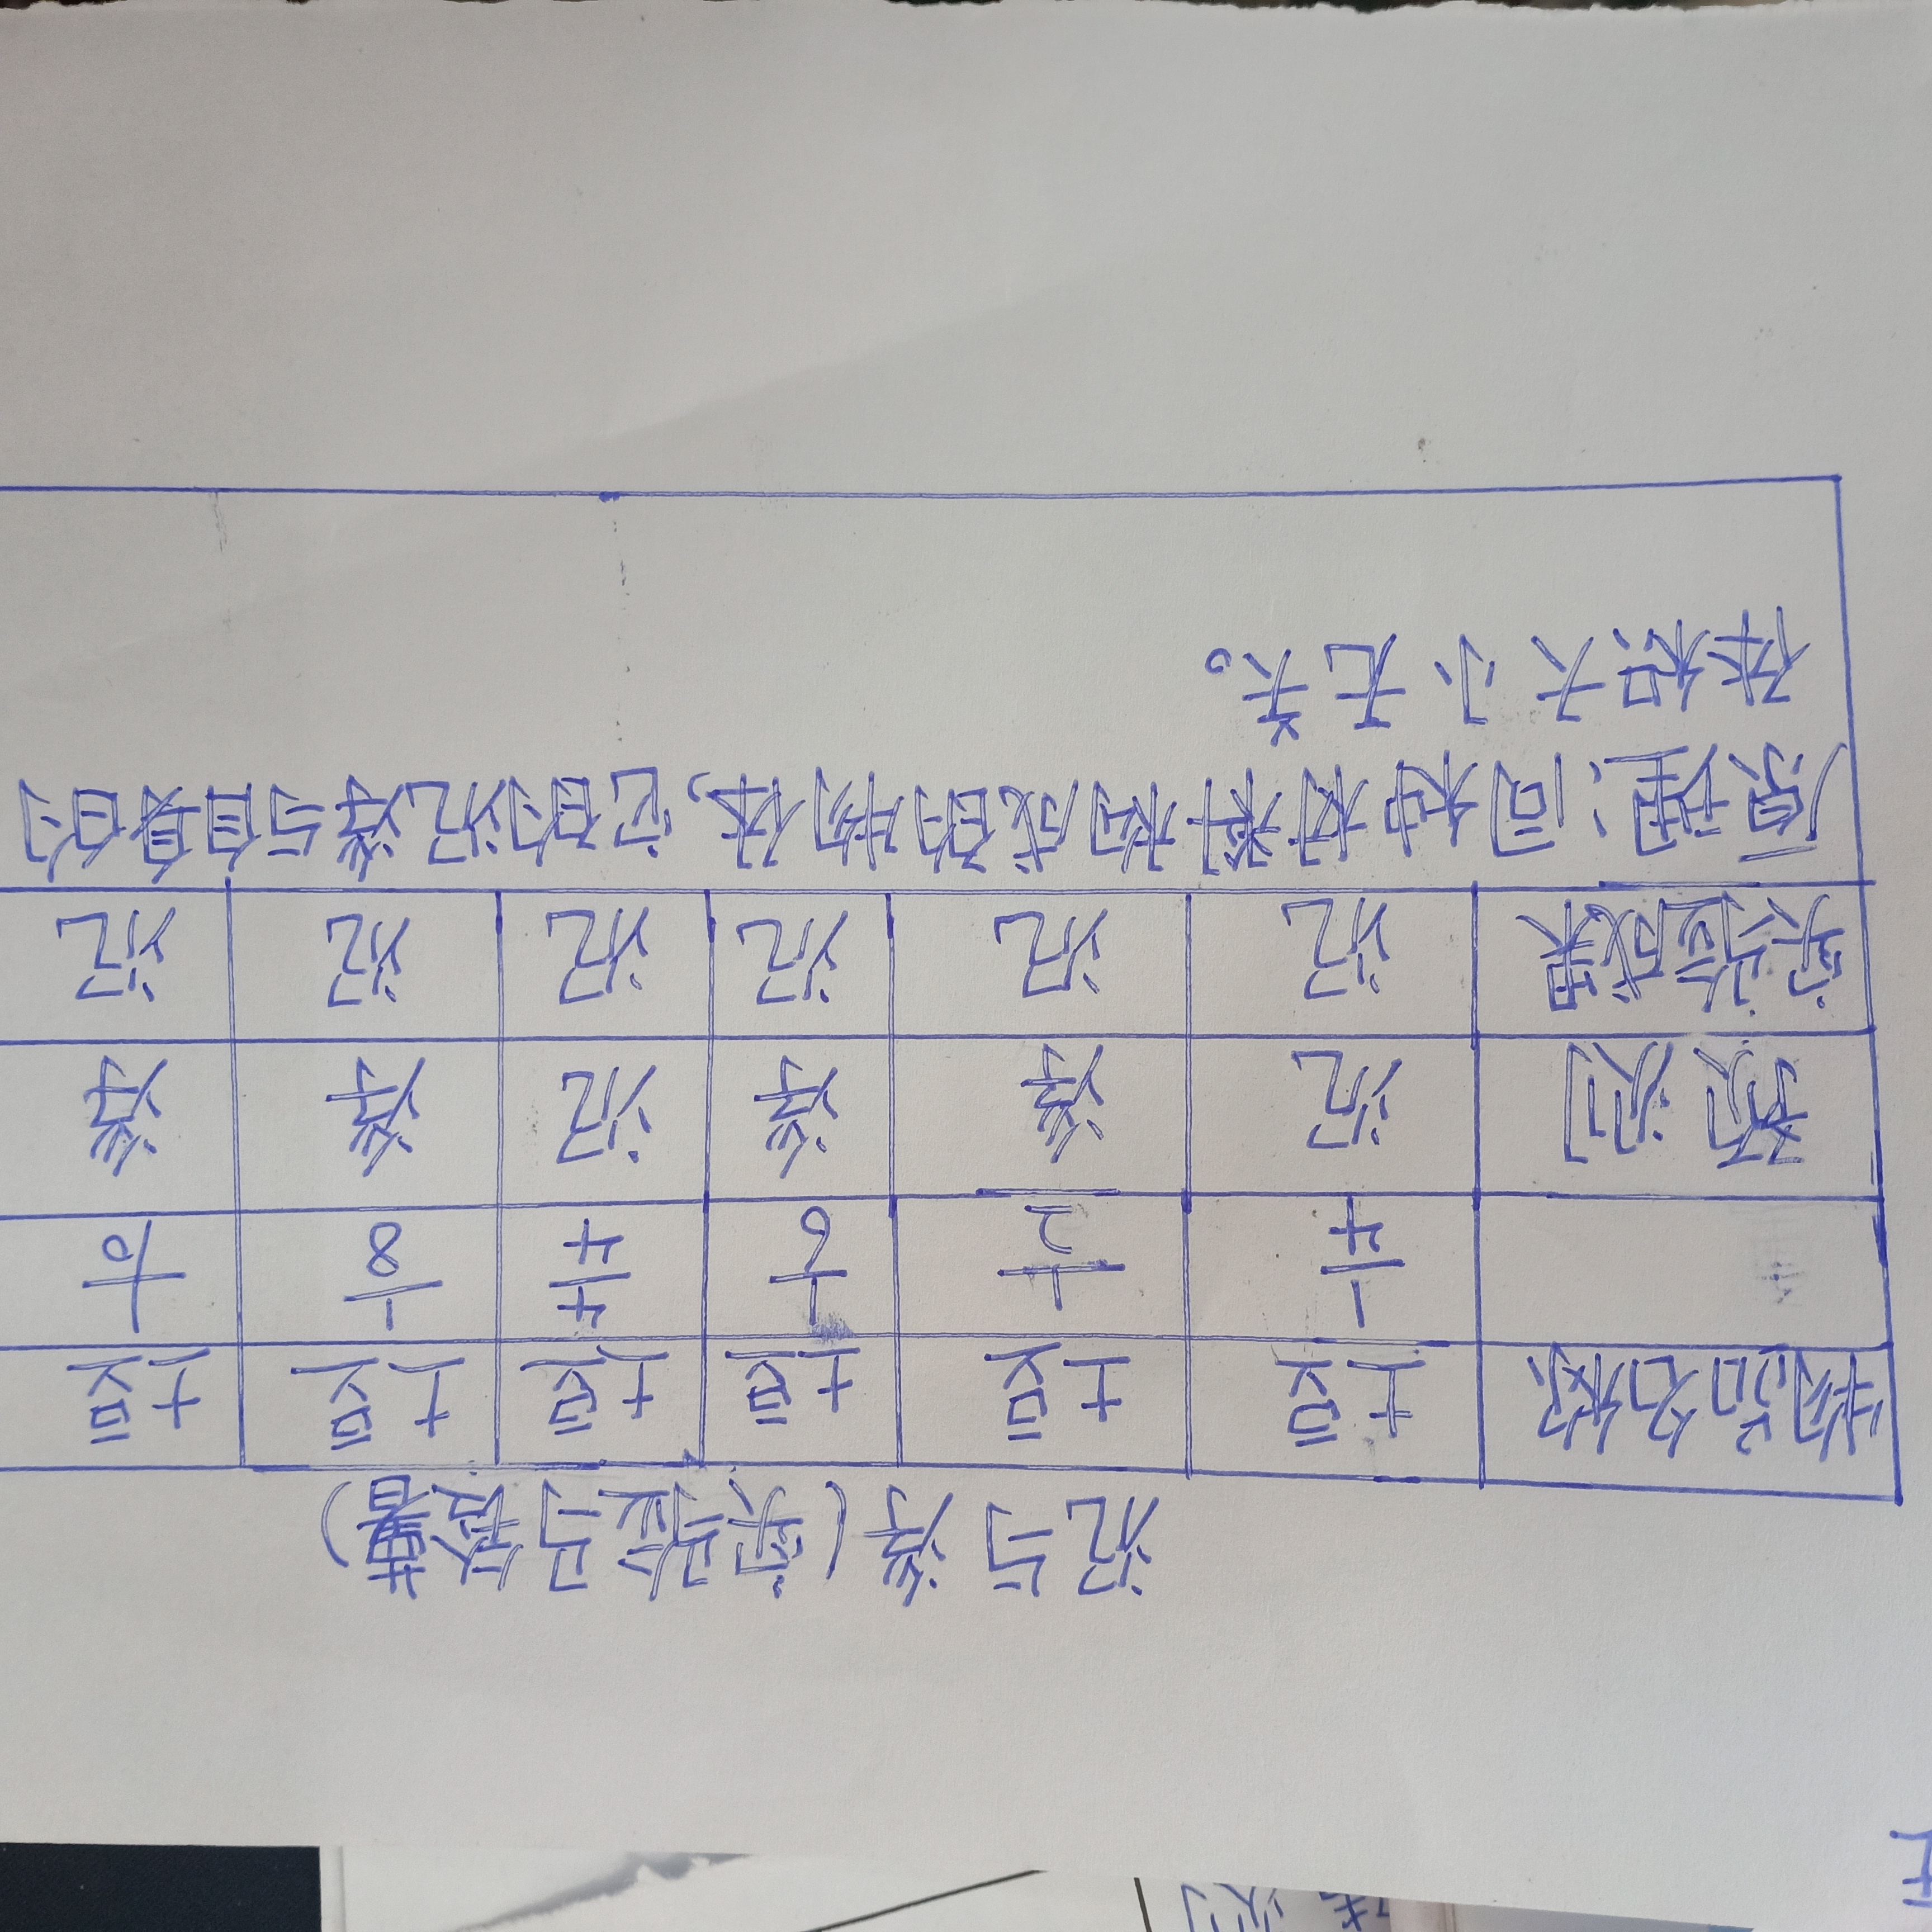 沉与浮(实验马铃薯)
物品名称 土豆 土豆 土豆 土豆 土豆 土豆
1/4 1/2 1/6 4/4 1/8 1/10
预测 沉 浮 浮 沉 浮 浮
实验成果 沉 沉 沉 沉 沉 沉
原理:同种材料构成的物体,它的沉浮与自身的
体积大小无关。